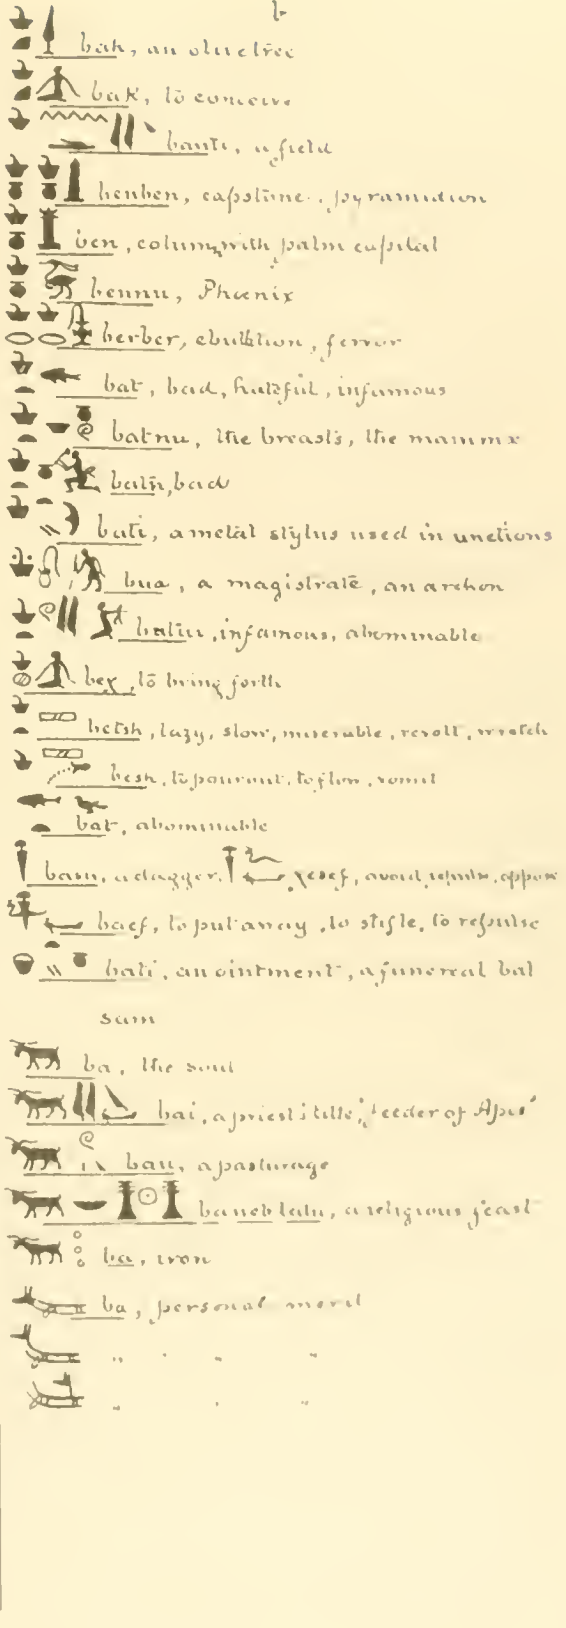 b
bak, an olive tree
bak, to conceive
banti, a field
benben, capstone, pyramidion
ben, column with palm capital
bennu, Phœnix
berber, ebullition, fervor
bat, bad, hateful, infamous
batnu, the breasts, the mammæ
batn, bad
bati, a metal stylus used in unctions
bua, a magistrate, an archon
batiu, infamous, abominable
beχ, to bring forth
betsh, lazy, slow, miserable, revolt, wretch
besh, to pour out, to flow, vomit
bat, abominable
basu, a dagger, χesef, avoid, repulse, oppose
baef, to put away, to stifle, to repulse
bati, an ointment, a funereal bal
sam
ba, the soul
bai, a priest's title, 'feeder of Apis'
bau, a pasturage
baneb tatu, a religious feast
ba, iron
ba, personal merit
„ „ „
„ „ „